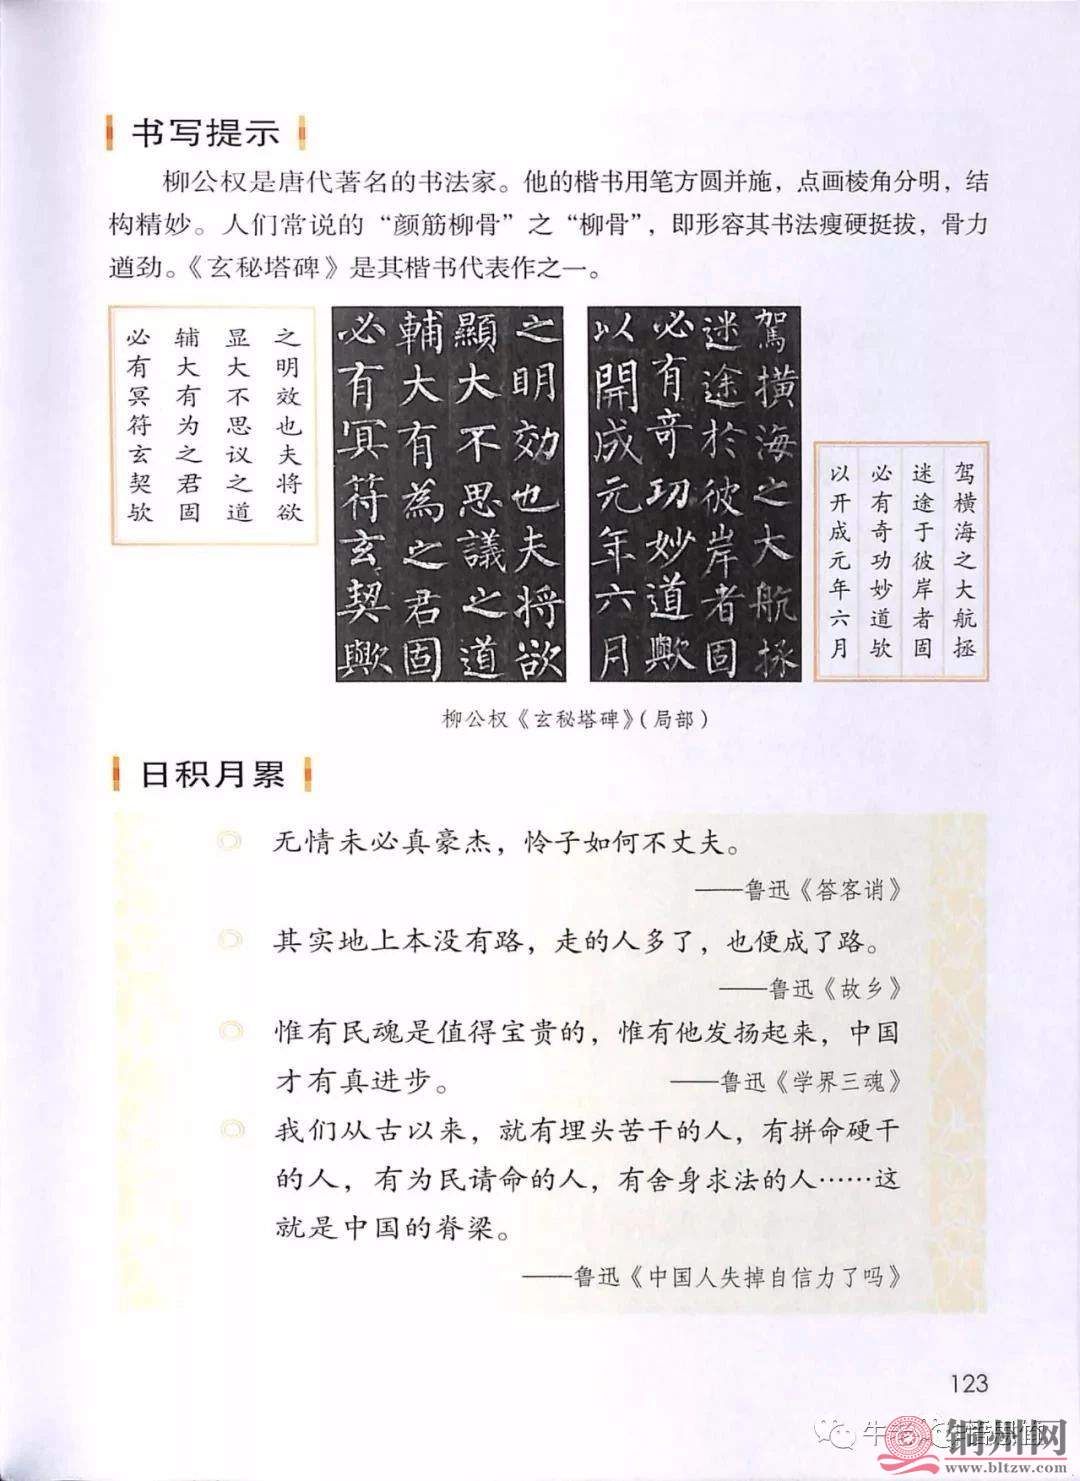 书写提示
柳公权是唐代著名的书法家。他的楷书用笔方圆并施，点画棱角分明，结
构精妙。人们常说的“颜筋柳骨”之“柳骨”，即形容其书法瘦硬挺拔，骨力
遒劲。《玄秘塔碑》是其楷书代表作之一。
之明效也夫将欲
显大不思议之道
辅大有为之君固
必有冥符玄契欤
之明効也夫将欲
顯大不思議之道
輔大有為之君固
必有冥符玄契歟
駕横海之大航拯
迷途於彼岸者固
必有奇功妙道歟
以開成元年六月
驾横海之大航拯
迷途于彼岸者固
必有奇功妙道欤
以开成元年六月
柳公权《玄秘塔碑》（局部）
日积月累
◎ 无情未必真豪杰，怜子如何不丈夫。
——鲁迅《答客诮》
◎ 其实地上本没有路，走的人多了，也便成了路。
——鲁迅《故乡》
◎ 惟有民魂是值得宝贵的，惟有他发扬起来，中国
才有真进步。 ——鲁迅《学界三魂》
◎ 我们从古以来，就有埋头苦干的人，有拼命硬干
的人，有为民请命的人，有舍身求法的人……这
就是中国的脊梁。
——鲁迅《中国人失掉自信力了吗》
123
www.bltzw.com